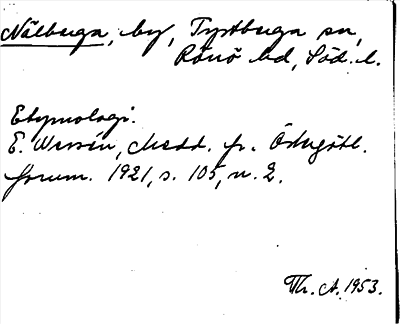 Nälbuga, by, Tystbuga sn,
Rönö hd, Söd. l.
Etymologi.
E. Wessén, Medd. fr. Östergötl.
fornm. 1921, s. 105, n. 2.
Th. A. 1953.